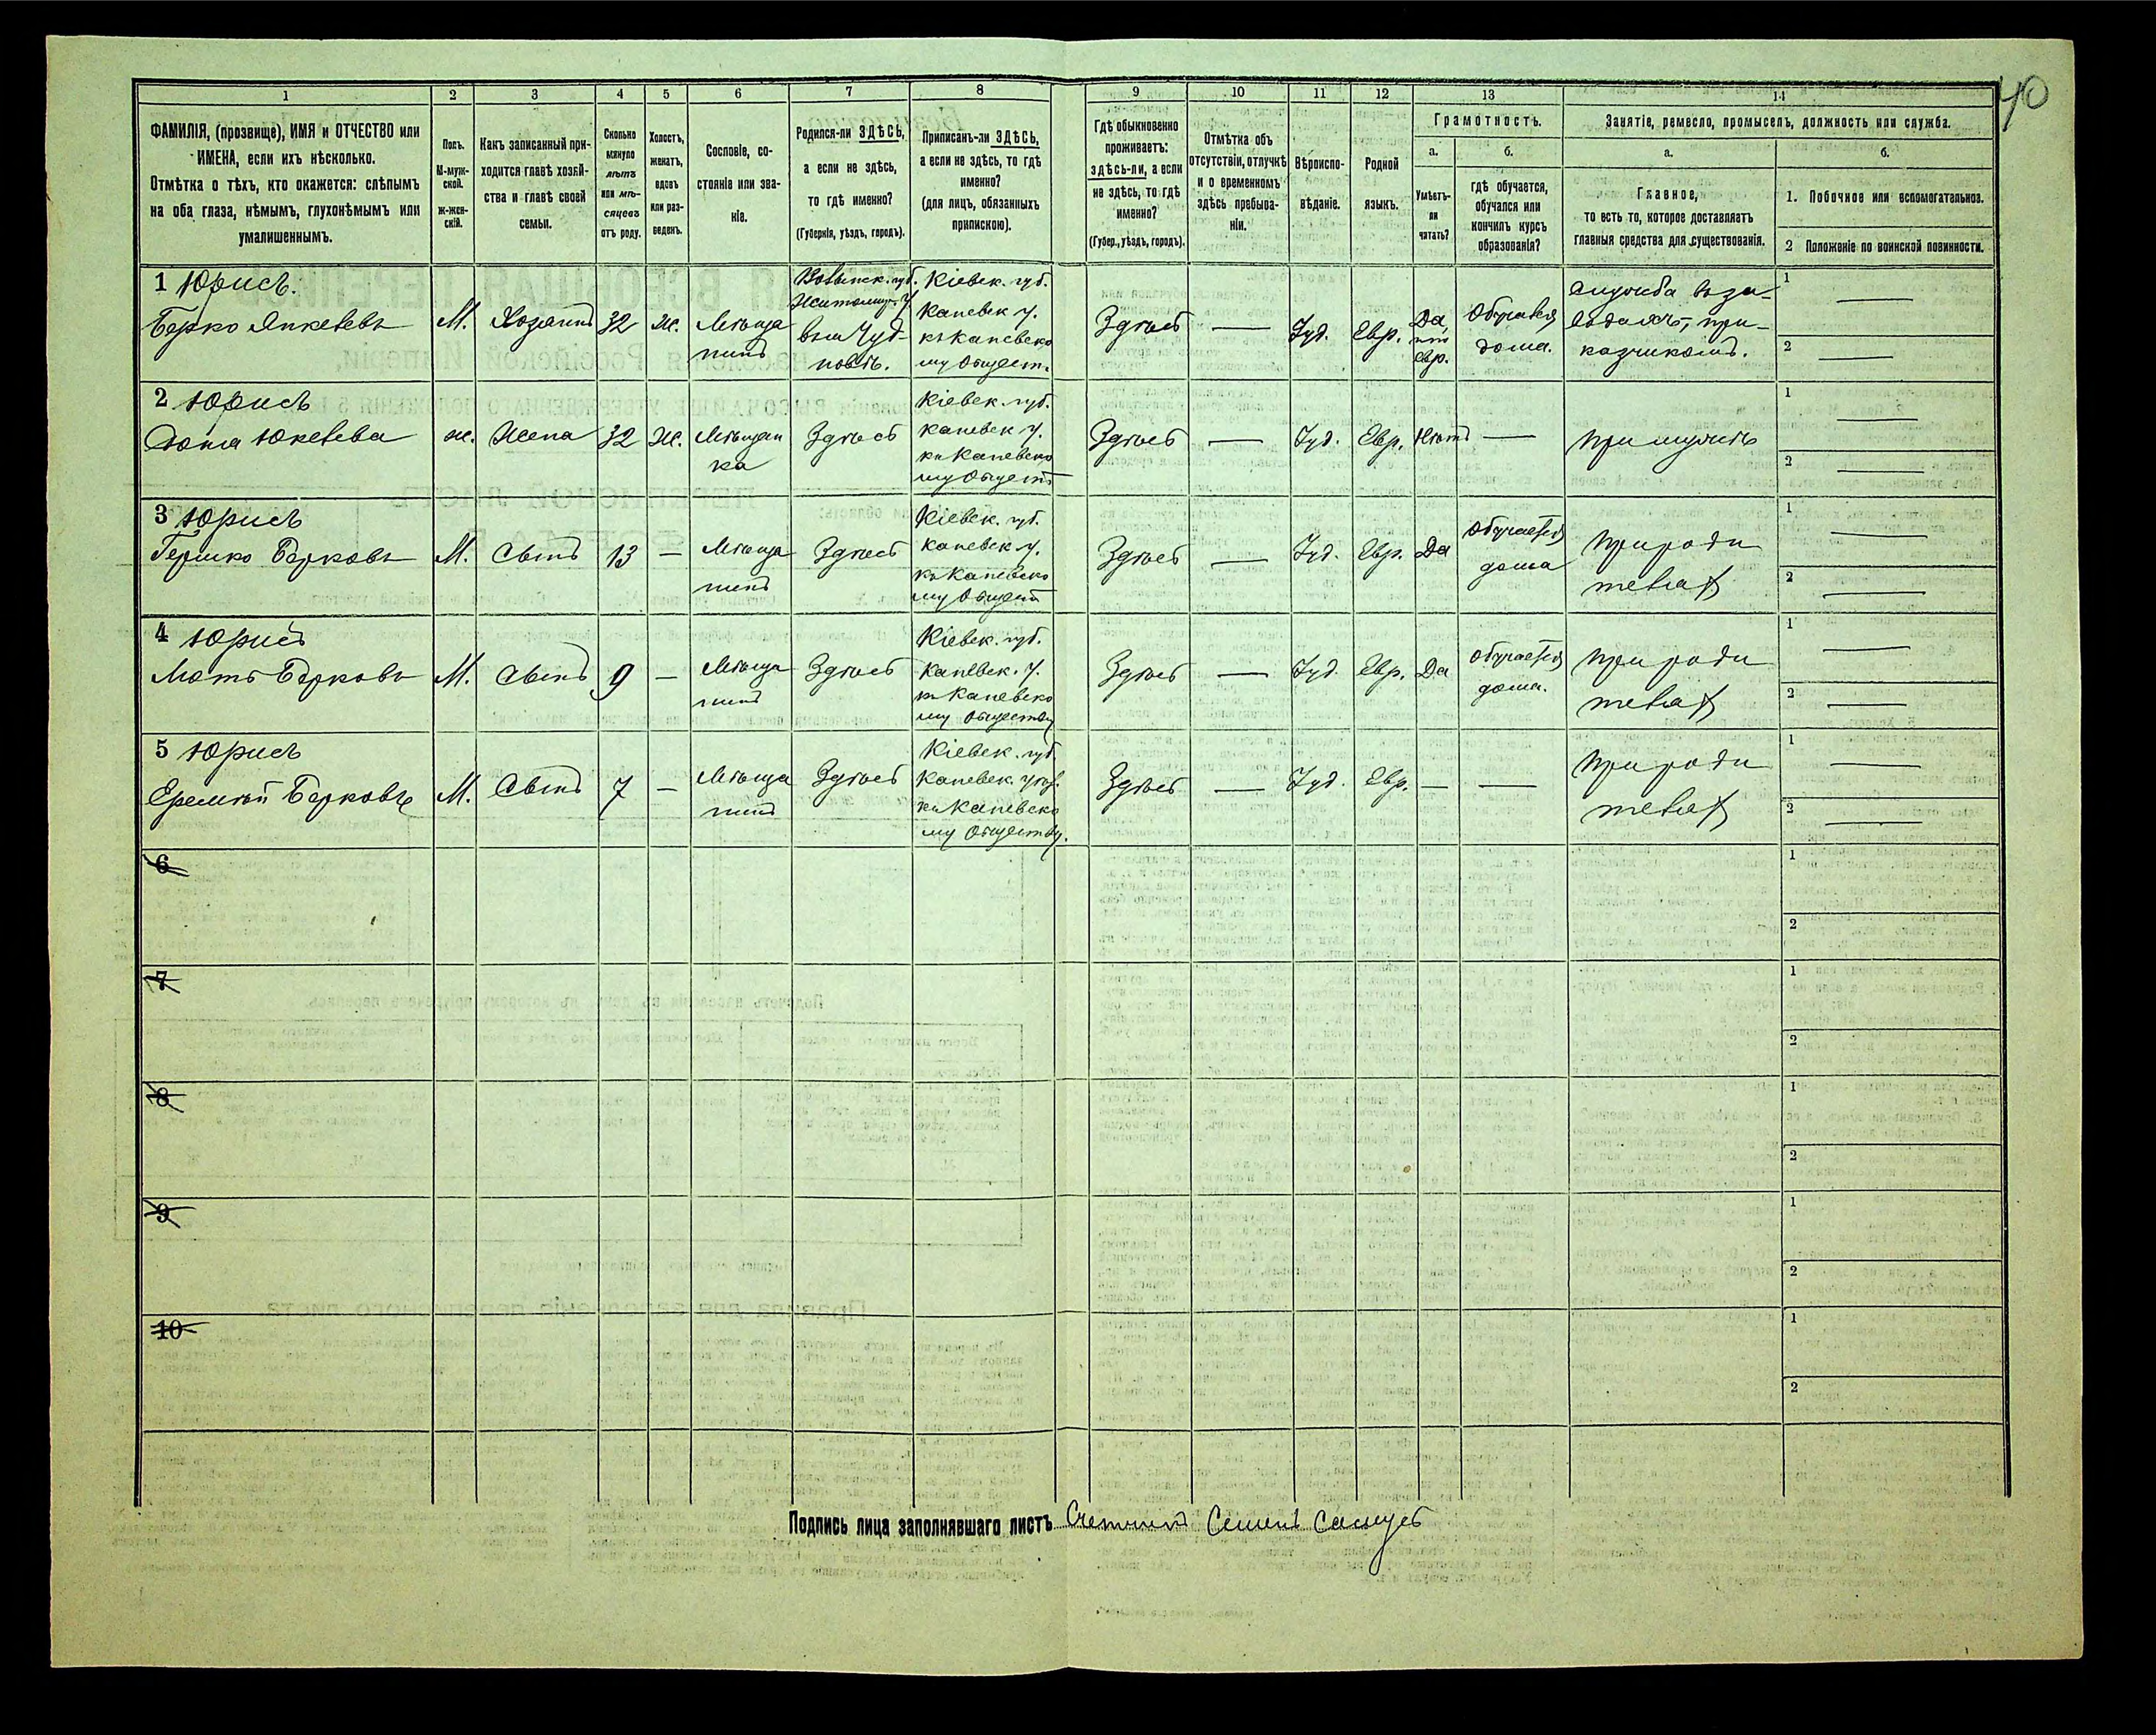 40
1 2 3 4 5 6 7 8 9 10 11 12 13 14
ФАМИЛІЯ, (прозвище), ИМЯ и ОТЧЕСТВО или
ИМЕНА, если ихъ нѣсколько.
Отмѣтка о тѣхъ, кто окажется: слѣпымъ
на оба глаза, нѣмымъ, глухонѣмымъ или
умалишеннымъ.
Полъ.
М-муж-
ской.
Ж-жен-
скій.
Какъ записанный при-
ходится главѣ хозяй-
ства и главѣ своей
семьи.
Сколько
минуло
лѣтъ
или мѣ-
сяцевъ
отъ роду.
Холостъ,
женатъ,
вдовъ
или раз-
веденъ.
Сословіе, со-
стояніе или зва-
ніе.
Родился-ли ЗДѢСЬ,
а если не здѣсь,
то гдѣ именно?
(Губернія, уѣздъ, городъ).
Приписанъ-ли ЗДѢСЬ,
а если не здѣсь, то гдѣ
именно?
(для лицъ, обязанныхъ
припискою).
Гдѣ обыкновенно
проживаетъ:
здѣсь-ли, а если
не здѣсь, то гдѣ
именно?
(Губер., уѣздъ, городъ).
Отмѣтка объ
отсутствіи, отлучкѣ
и о временномъ
здѣсь пребыва-
ніи.
Вѣроиспо-
вѣданіе.
Родной
языкъ.
Грамотность.
а.
Умѣетъ-
ли
читать?
б.
гдѣ обучается,
обучался или
кончилъ курсъ
образованія?
Занятіе, ремесло, промыселъ, должность или служба.
а.
Главное,
то есть то, которое доставляетъ
главныя средства для существованія.
б.
1. Побочное или вспомогательное.
2 Положеніе по воинской повинности.
1 Юрисъ.
Берко Янкелевъ
М.
Хозяинъ
32
ж.
Мѣща
нинъ
Волынск. губ.
Житомир. у.
Чуд-
новѣ.
Кіевск. губ.
Каневск у.
къ Каневско
му Общест.
Здѣсь
—
Іуд.
Евр.
Да,
по
евр.
Обучался
дома.
Служба въ за-
приказчикомъ.
1 —
2 —
2 Юрисъ
ж.
Жена
32
ж.
Мѣщан
ка
Здѣсь
Кіевск. губ.
Каневск у.
къ Каневско
му Общест
Здѣсь
—
Іуд.
Евр.
Нѣтъ
—
При мужѣ
1 —
2 —
3 Юрисъ
Гершко Берковъ
М.
Сынъ
13
—
Мѣща
нинъ
Здѣсь
Кіевск. губ.
Каневск у.
къ Каневско
му Общест
Здѣсь
—
Іуд.
Евр.
Да
Обучается
дома
При роди
теляхъ
1 —
2 —
4 Юрисъ
Мотъ Берковъ
М.
Сынъ
9
—
Мѣща
нинъ
Здѣсь
Кіевск. губ.
Каневск. у.
къ Каневско
му Обществу
Здѣсь
—
Іуд.
Евр.
Да
Обучается
дома.
При роди
теляхъ
1 —
2 —
5 Юрисъ
Еремѣй Берковъ
М.
Сынъ
7
—
Мѣща
нинъ
Здѣсь
Кіевск. губ
Каневск. уѣз.
къ Каневско
му Обществу.
Здѣсь
—
Іуд.
Евр.
—
—
При роди
теляхъ
1 —
2 —
6
1
2
7
1
2
8
1
2
9
1
2
10
1
2
Подпись лица заполнявшаго листъ Счетчикъ Семенъ